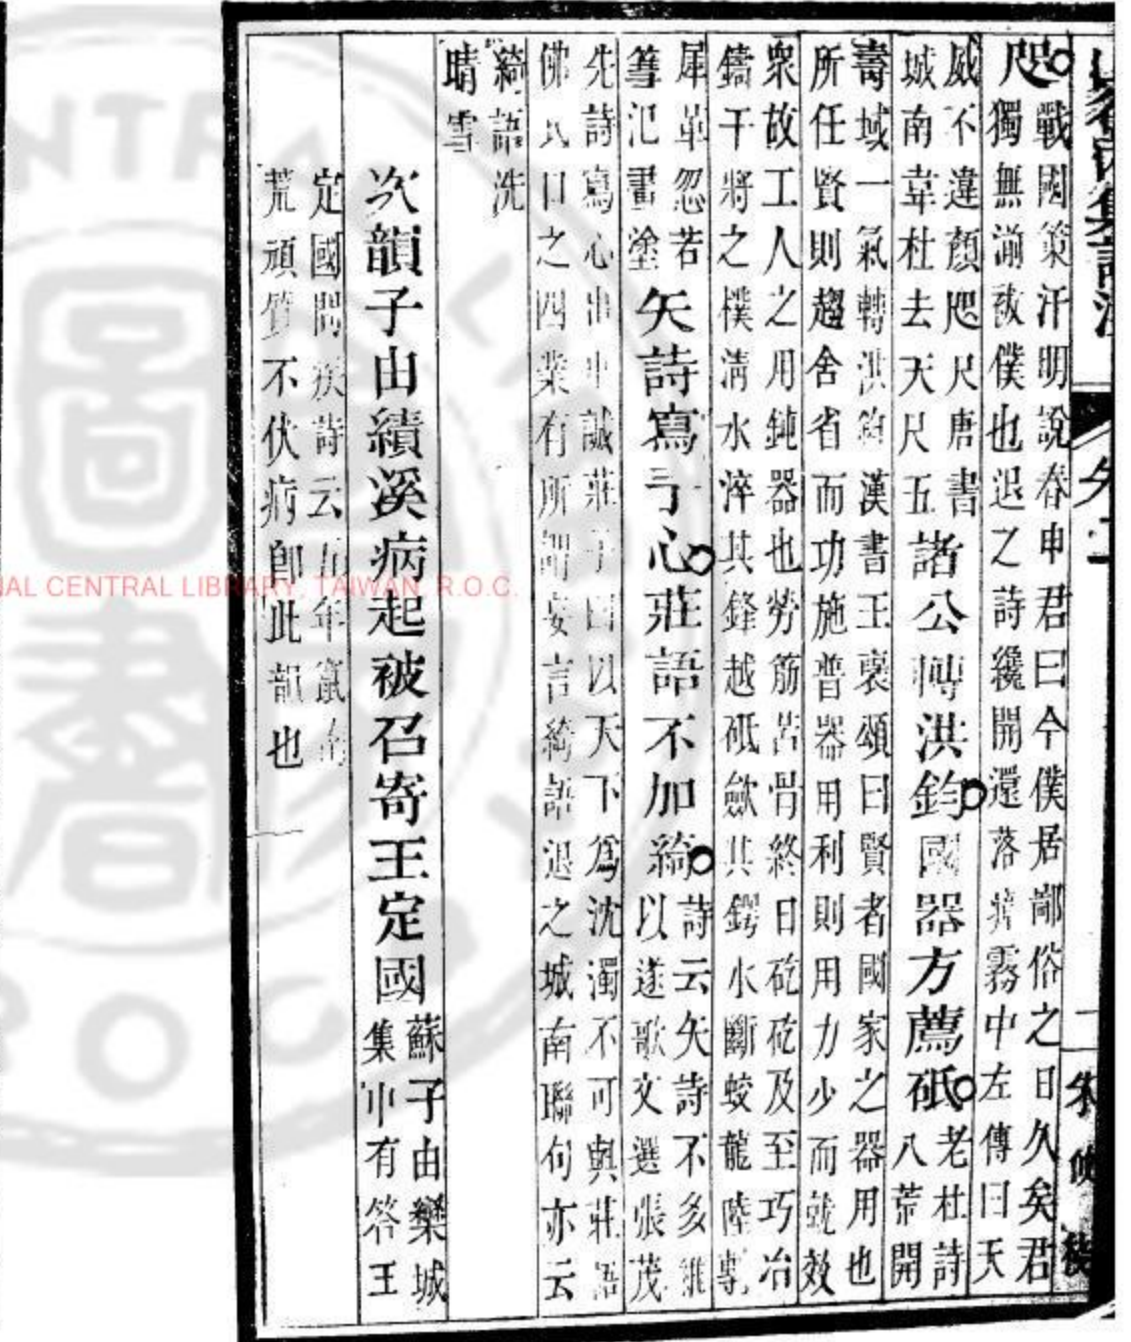 咫戰國策汗明說春申君曰今僕居鄙俗之日久矣君
獨無湔祓僕也退之詩纔開還落瘴霧中左傳曰天
威不違顏咫尺唐書
城南韋杜去天尺五諸公轉洪鈞國器方薦砥老杜詩
八荒開
壽域一氣轉洪鈞漢書王褒頌曰賢者國家之器用也
所任賢則趨舍省而功施普器用利則用力少而就效
衆故工人之用鈍器也勞筋苦骨終日矻矻及至巧冶
鑄干將之樸淸水淬其鋒越砥歛其鍔水斷蛟龍陸剸
犀革忽若
篲氾畫塗矢詩寫予心莊語不加綺詩云矢詩不多維
以遂歌文選張茂
先詩寫心出中誠莊子曰以天下爲沈濁不可與莊語
佛氏口之四業有所謂妄言綺語退之城南聯句亦云
綺語洗
晴雪
次韻子由績溪病起被召寄王定國蘇子由欒城
集中有答王
定國問疾詩云五年竄南
荒頑質不伏病卽此韻也
NATIONAL CENTRAL LIBRARY, TAIWAN, R.O.C.